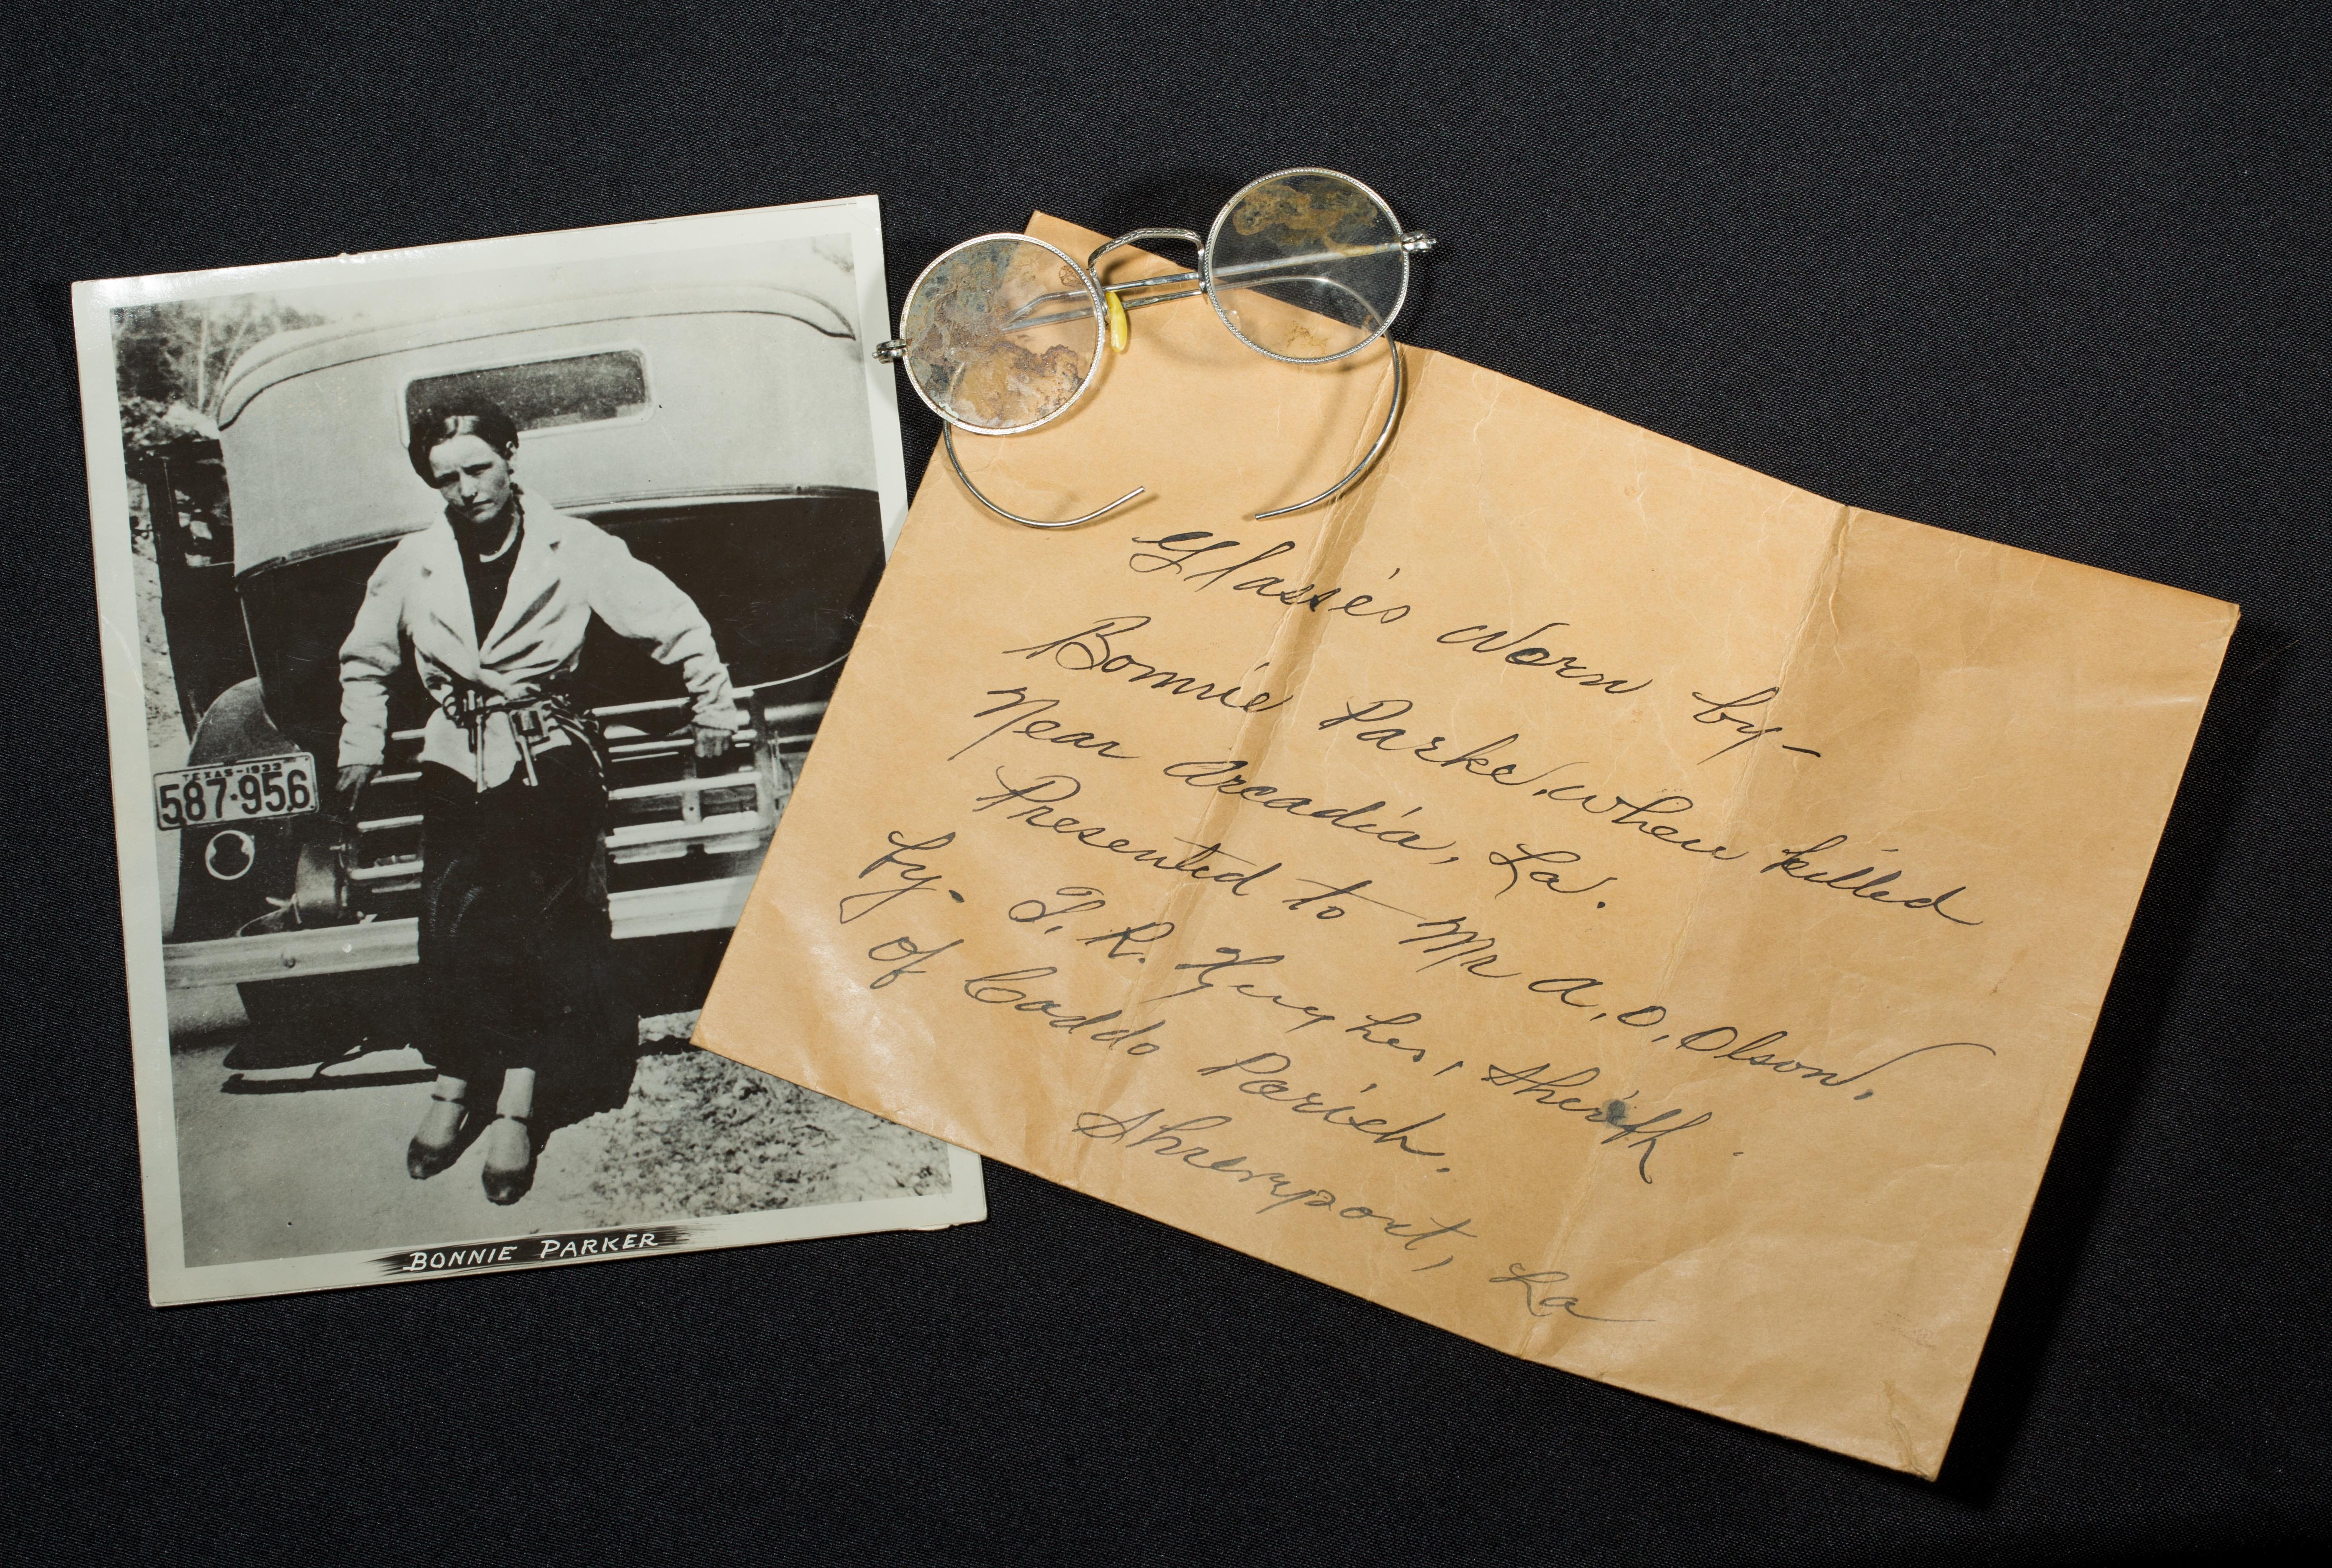 TEXAS-1933
587-956
BONNIE PARKER
Glasses Worn by-
Bonnie Parker, when killed
Near Arcadia, La.
Presented to Mr A. O. Olson,
by- T. R. Hughes, Sheriff.
of Caddo Parish.
Shreveport, La